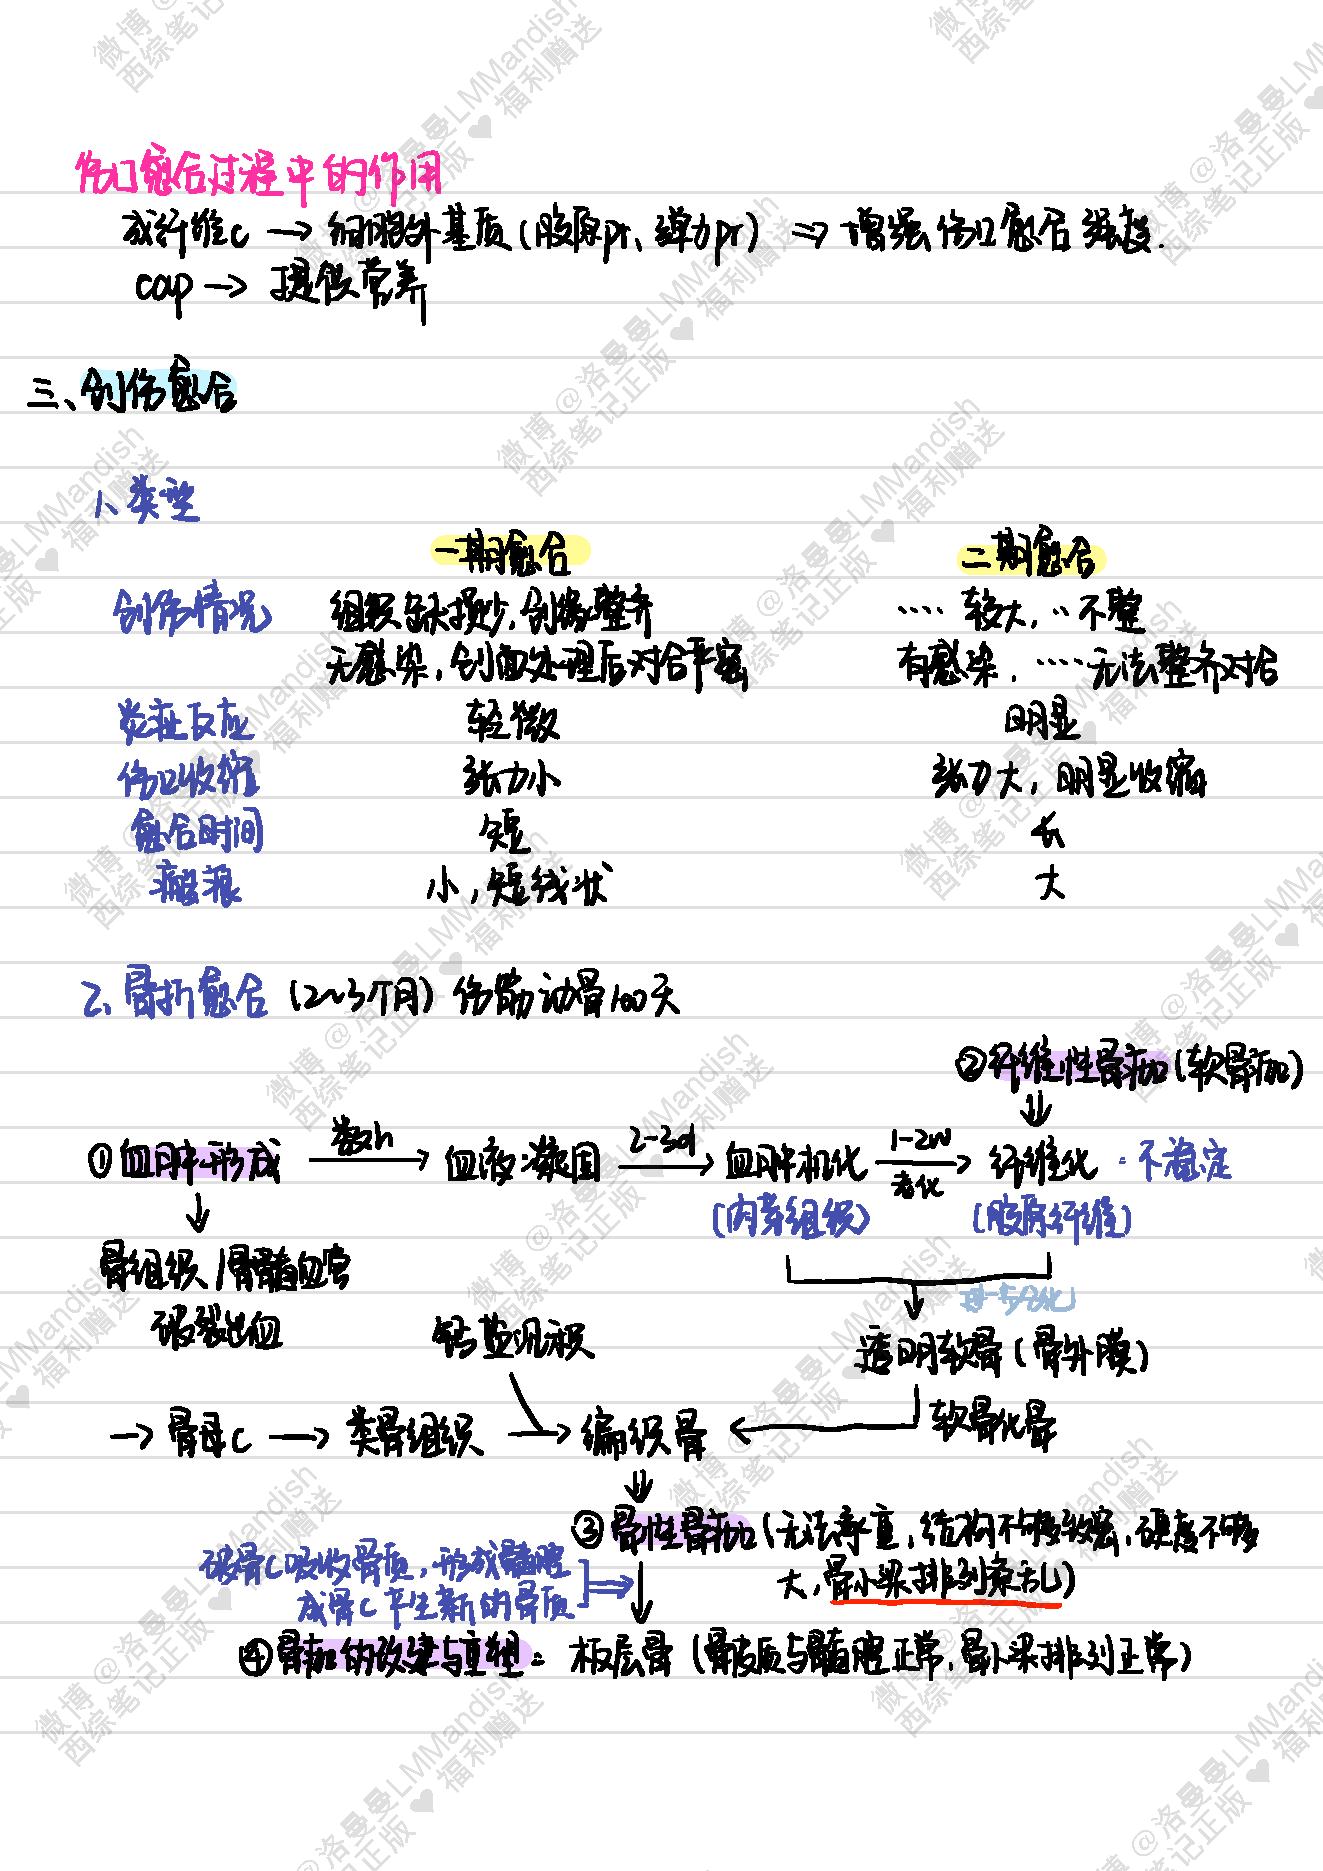 伤口愈合过程中的作用
成纤维c → 细胞外基质(胶原pr、弹力pr) ⇒ 增强伤口愈合强度.
cap → 提供营养
三、创伤愈合
1、类型
一期愈合 二期愈合
创伤情况 组织缺损少,创缘整齐 …… 较大, ‥不整
无感染,创面处理后对合严密 有感染, ……无法整齐对合
炎症反应 轻微 明显
伤口收缩 张力小 张力大,明显收缩
愈合时间 短 长
瘢痕 小,短线状 大
2、骨折愈合 (2~3个月) 伤筋动骨100天
②纤维性骨痂(软骨痂)
⇓
①血肿形成 数h→ 血液凝固 2-3d→ 血肿机化 1-2w 老化→ 纤维化 · 不稳定
(肉芽组织) (胶原纤维)
↓
骨组织/骨髓血管 进一步分化
破裂出血 钙盐沉积 透明软骨(骨外膜)
→骨母c → 类骨组织 → 编织骨 ← 软骨化骨
⇓
③骨性骨痂(无法承重,结构不够致密,硬度不够
大,骨小梁排列紊乱)
破骨c吸收骨质,形成髓腔
成骨c产生新的骨质
④骨痂的改建与重塑: 板层骨(骨皮质与髓腔正常,骨小梁排列正常)
微博@洛曼曼LMMandish
西综笔记正版♥福利赠送